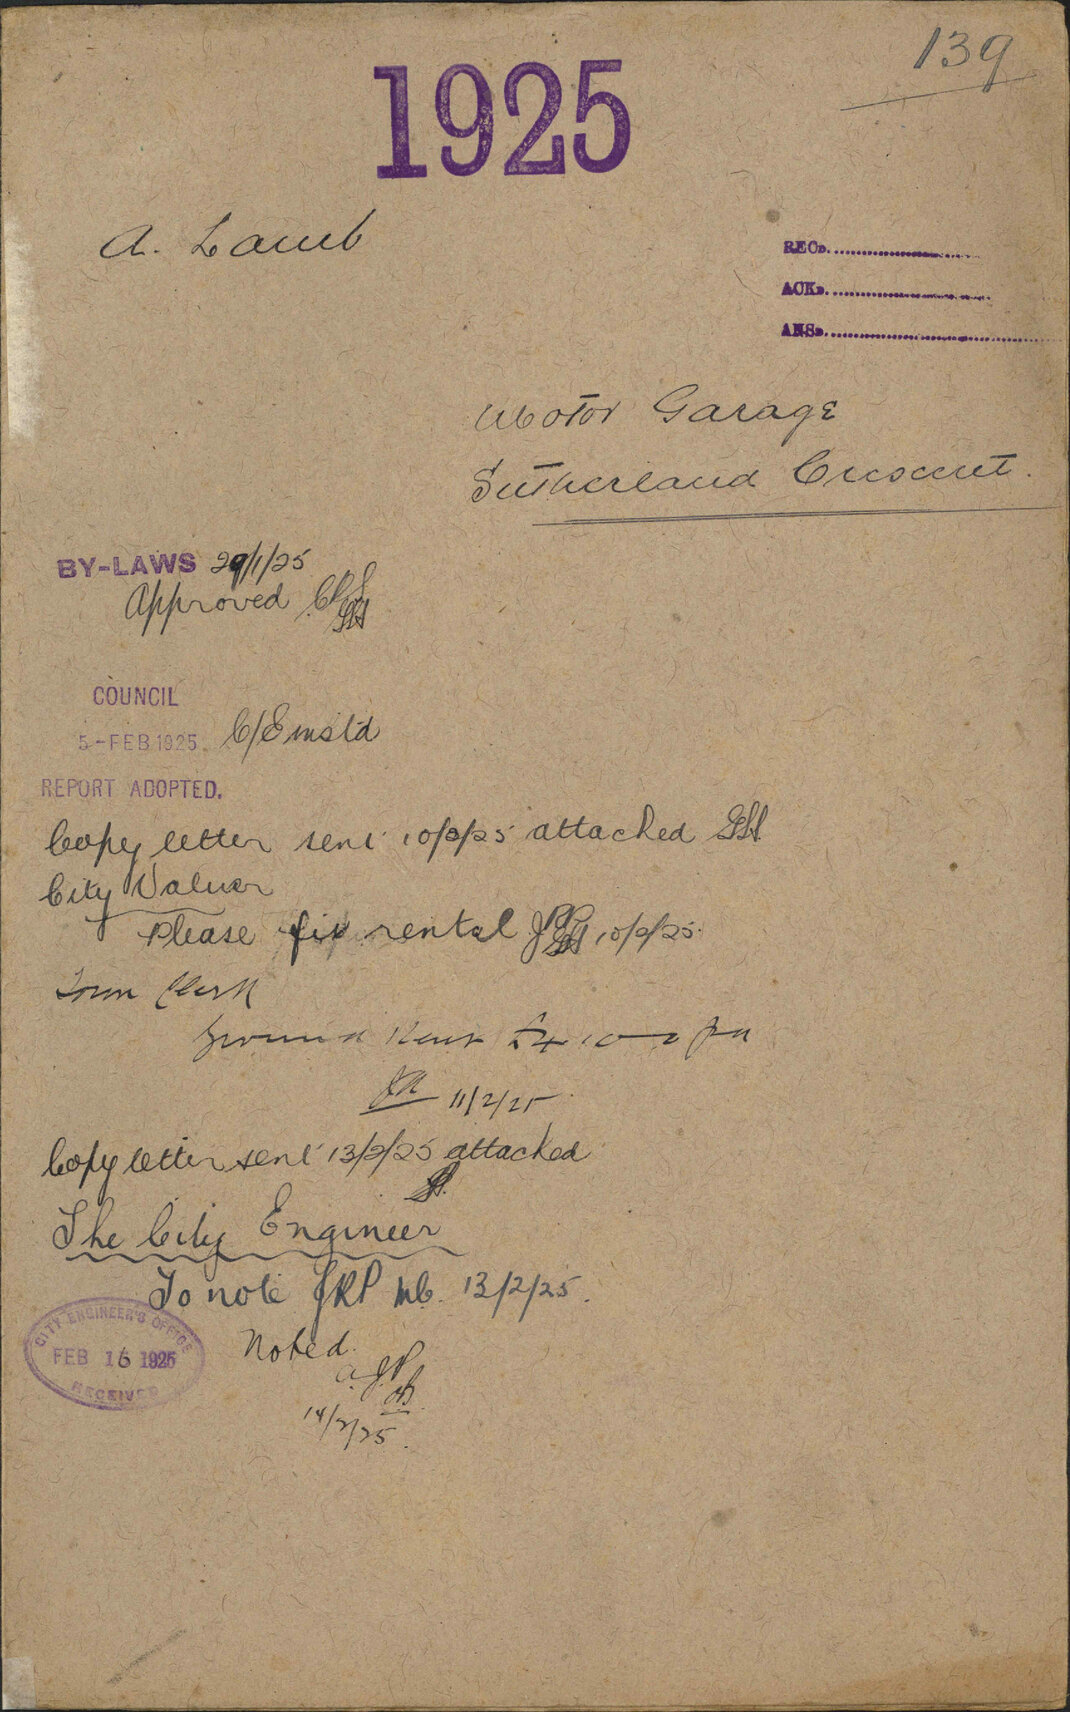 139
1925
A. Lamb
REC.D
ACK.D
ANS.D
Motor Garage
Sutherland Crescent.
BY-LAWS 29/1/25
Approved
COUNCIL
5-FEB 1925 C/E instd
REPORT ADOPTED.
Copy letter sent 10/2/25 attached
City Valuer
Please fix rental 10/2/25.
Town Clerk
Ground Rent £4-10-0 pa
11/2/25
Copy letter sent 13/2/25 attached
The City Engineer
To note JRP 13/2/25.
Noted.
CITY ENGINEER'S OFFICE
FEB 16 1925
RECEIVED
14/2/25.